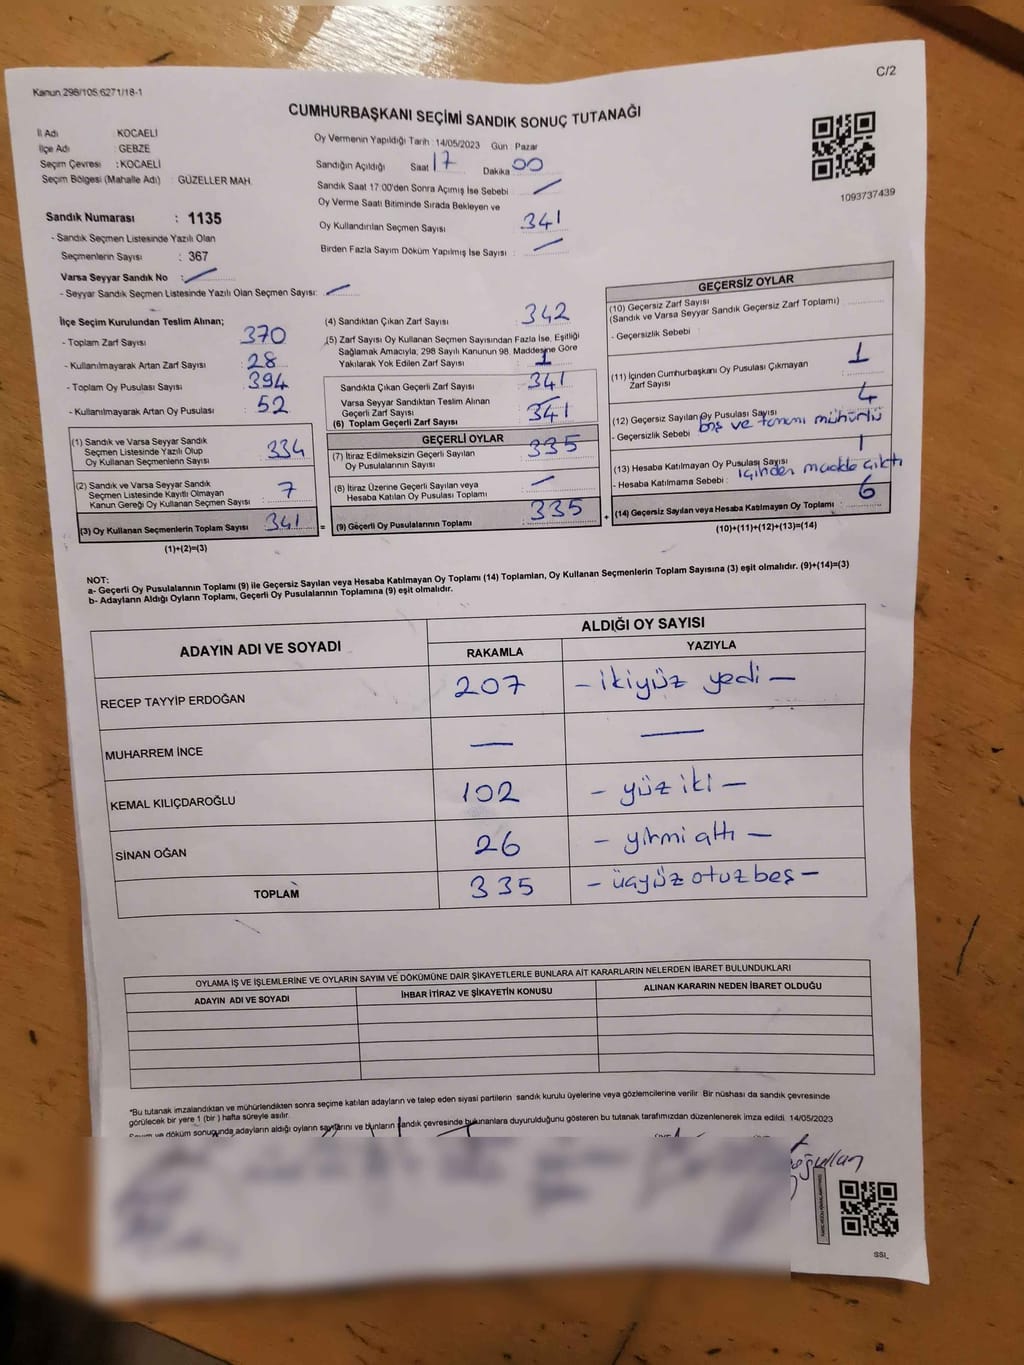 C/2
Kanun 298/105,6271/18-1
CUMHURBAŞKANI SEÇİMİ SANDIK SONUÇ TUTANAĞI
İl Adı : KOCAELİ
İlçe Adı : GEBZE
Seçim Çevresi : KOCAELİ
Seçim Bölgesi (Mahalle Adı) : GÜZELLER MAH.
Sandık Numarası : 1135
- Sandık Seçmen Listesinde Yazılı Olan
Seçmenlerin Sayısı : 367
Varsa Seyyar Sandık No :
- Seyyar Sandık Seçmen Listesinde Yazılı Olan Seçmen Sayısı:
Oy Vermenin Yapıldığı Tarih : 14/05/2023 Gün : Pazar
Sandığın Açıldığı Saat 17 Dakika 00
Sandık Saat 17:00'den Sonra Açımış İse Sebebi :
Oy Verme Saati Bitiminde Sırada Bekleyen ve
Oy Kullandırılan Seçmen Sayısı : 341
Birden Fazla Sayım Döküm Yapılmış İse Sayısı :
1093737439
İlçe Seçim Kurulundan Teslim Alınan;
- Toplam Zarf Sayısı : 370
- Kullanılmayarak Artan Zarf Sayısı : 28
- Toplam Oy Pusulası Sayısı : 394
- Kullanılmayarak Artan Oy Pusulası : 52
(1) Sandık ve Varsa Seyyar Sandık
Seçmen Listesinde Yazılı Olup
Oy Kullanan Seçmenlerin Sayısı : 334
(2) Sandık ve Varsa Seyyar Sandık
Seçmen Listesinde Kayıtlı Olmayan
Kanun Gereği Oy Kullanan Seçmen Sayısı : 7
(3) Oy Kullanan Seçmenlerin Toplam Sayısı : 341
(1)+(2)=(3)
(4) Sandıktan Çıkan Zarf Sayısı : 342
(5) Zarf Sayısı Oy Kullanan Seçmen Sayısından Fazla İse, Eşitliği
Sağlamak Amacıyla; 298 Sayılı Kanunun 98. Maddesine Göre
Yakılarak Yok Edilen Zarf Sayısı : 1
Sandıkta Çıkan Geçerli Zarf Sayısı : 341
Varsa Seyyar Sandıktan Teslim Alınan
Geçerli Zarf Sayısı :
(6) Toplam Geçerli Zarf Sayısı : 341
GEÇERLİ OYLAR
(7) İtiraz Edilmeksizin Geçerli Sayılan
Oy Pusulalarının Sayısı : 335
(8) İtiraz Üzerine Geçerli Sayılan veya
Hesaba Katılan Oy Pusulası Toplamı :
= (9) Geçerli Oy Pusulalarının Toplamı : 335
GEÇERSİZ OYLAR
(10) Geçersiz Zarf Sayısı
(Sandık ve Varsa Seyyar Sandık Geçersiz Zarf Toplamı) :
- Geçersizlik Sebebi :
(11) İçinden Cumhurbaşkanı Oy Pusulası Çıkmayan
Zarf Sayısı : 1
(12) Geçersiz Sayılan Oy Pusulası Sayısı : 4
- Geçersizlik Sebebi : boş ve tamamı mühürlü
(13) Hesaba Katılmayan Oy Pusulası Sayısı : 1
- Hesaba Katılmama Sebebi : içinden madde çıktı
+ (14) Geçersiz Sayılan veya Hesaba Katılmayan Oy Toplamı : 6
(10)+(11)+(12)+(13)=(14)
NOT:
a- Geçerli Oy Pusulalarının Toplamı (9) ile Geçersiz Sayılan veya Hesaba Katılmayan Oy Toplamı (14) Toplamları, Oy Kullanan Seçmenlerin Toplam Sayısına (3) eşit olmalıdır. (9)+(14)=(3)
b- Adayların Aldığı Oyların Toplamı, Geçerli Oy Pusulalarının Toplamına (9) eşit olmalıdır.
ADAYIN ADI VE SOYADI ALDIĞI OY SAYISI
RAKAMLA YAZIYLA
RECEP TAYYİP ERDOĞAN 207 - ikiyüz yedi -
MUHARREM İNCE — —
KEMAL KILIÇDAROĞLU 102 - yüz iki -
SİNAN OĞAN 26 - yirmi altı -
TOPLAM 335 - üçyüz otuz beş -
OYLAMA İŞ VE İŞLEMLERİNE VE OYLARIN SAYIM VE DÖKÜMÜNE DAİR ŞİKAYETLERLE BUNLARA AİT KARARLARIN NELERDEN İBARET BULUNDUKLARI
ADAYIN ADI VE SOYADI İHBAR İTİRAZ VE ŞİKAYETİN KONUSU ALINAN KARARIN NEDEN İBARET OLDUĞU
*Bu tutanak imzalandıktan ve mühürlendikten sonra seçime katılan adayların ve talep eden siyasi partilerin sandık kurulu üyelerine veya gözlemcilerine verilir. Bir nüshası da sandık çevresinde
görülecek bir yere 1 (bir) hafta süreyle asılır.
Sayım ve döküm sonucunda adayların aldığı oyların sayılarını ve bunların sandık çevresinde bulunanlara duyurulduğunu gösteren bu tutanak tarafımızdan düzenlenerek imza edildi. 14/05/2023
SSI_